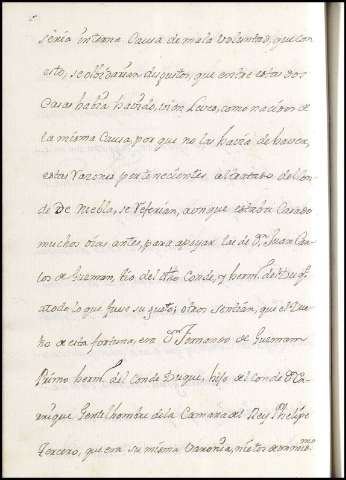 seria interna Causa de mala voluntad, que con
esto, se olbidarian disgustos, que entre estas dos
Casas havia havido, sin Leyes, como nacidos de
la misma Causa, por que no las havia de haver,
estas razones pertenecientes al tratado del Con-
de De Niebla, se referian, aunque estava Casado
muchos dias antes, para apoyar las de Dn Juan Car-
los de Guzman, tio del dho Conde, y hermo del Duq
a todo lo que fuese su gusto; otros sentian, que el Due-
ño de esta fortuna, era Dn Fernando de Guzmann
Primo hermo del Conde Duque, hijo del Conde D
rique Gentilhombre de la Camara del Rey Phelipe
Tercero, que era su misma varonia, nietos de